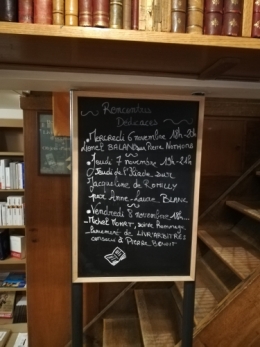 Rencontres
Dédicaces
• Mercredi 6 novembre 18h-21h
Lionel BALAND sur Pierre NOTHOMB
• Jeudi 7 novembre 18h-21h
Jeudi de l'Iliade sur
Jacqueline de ROMILLY
par Anne-Laure BLANC
• Vendredi 8 novembre 18h...
Michel MOURT, soirée Hommage
lancement de LIVR'ARBITRES
consacré à Pierre BENOIT